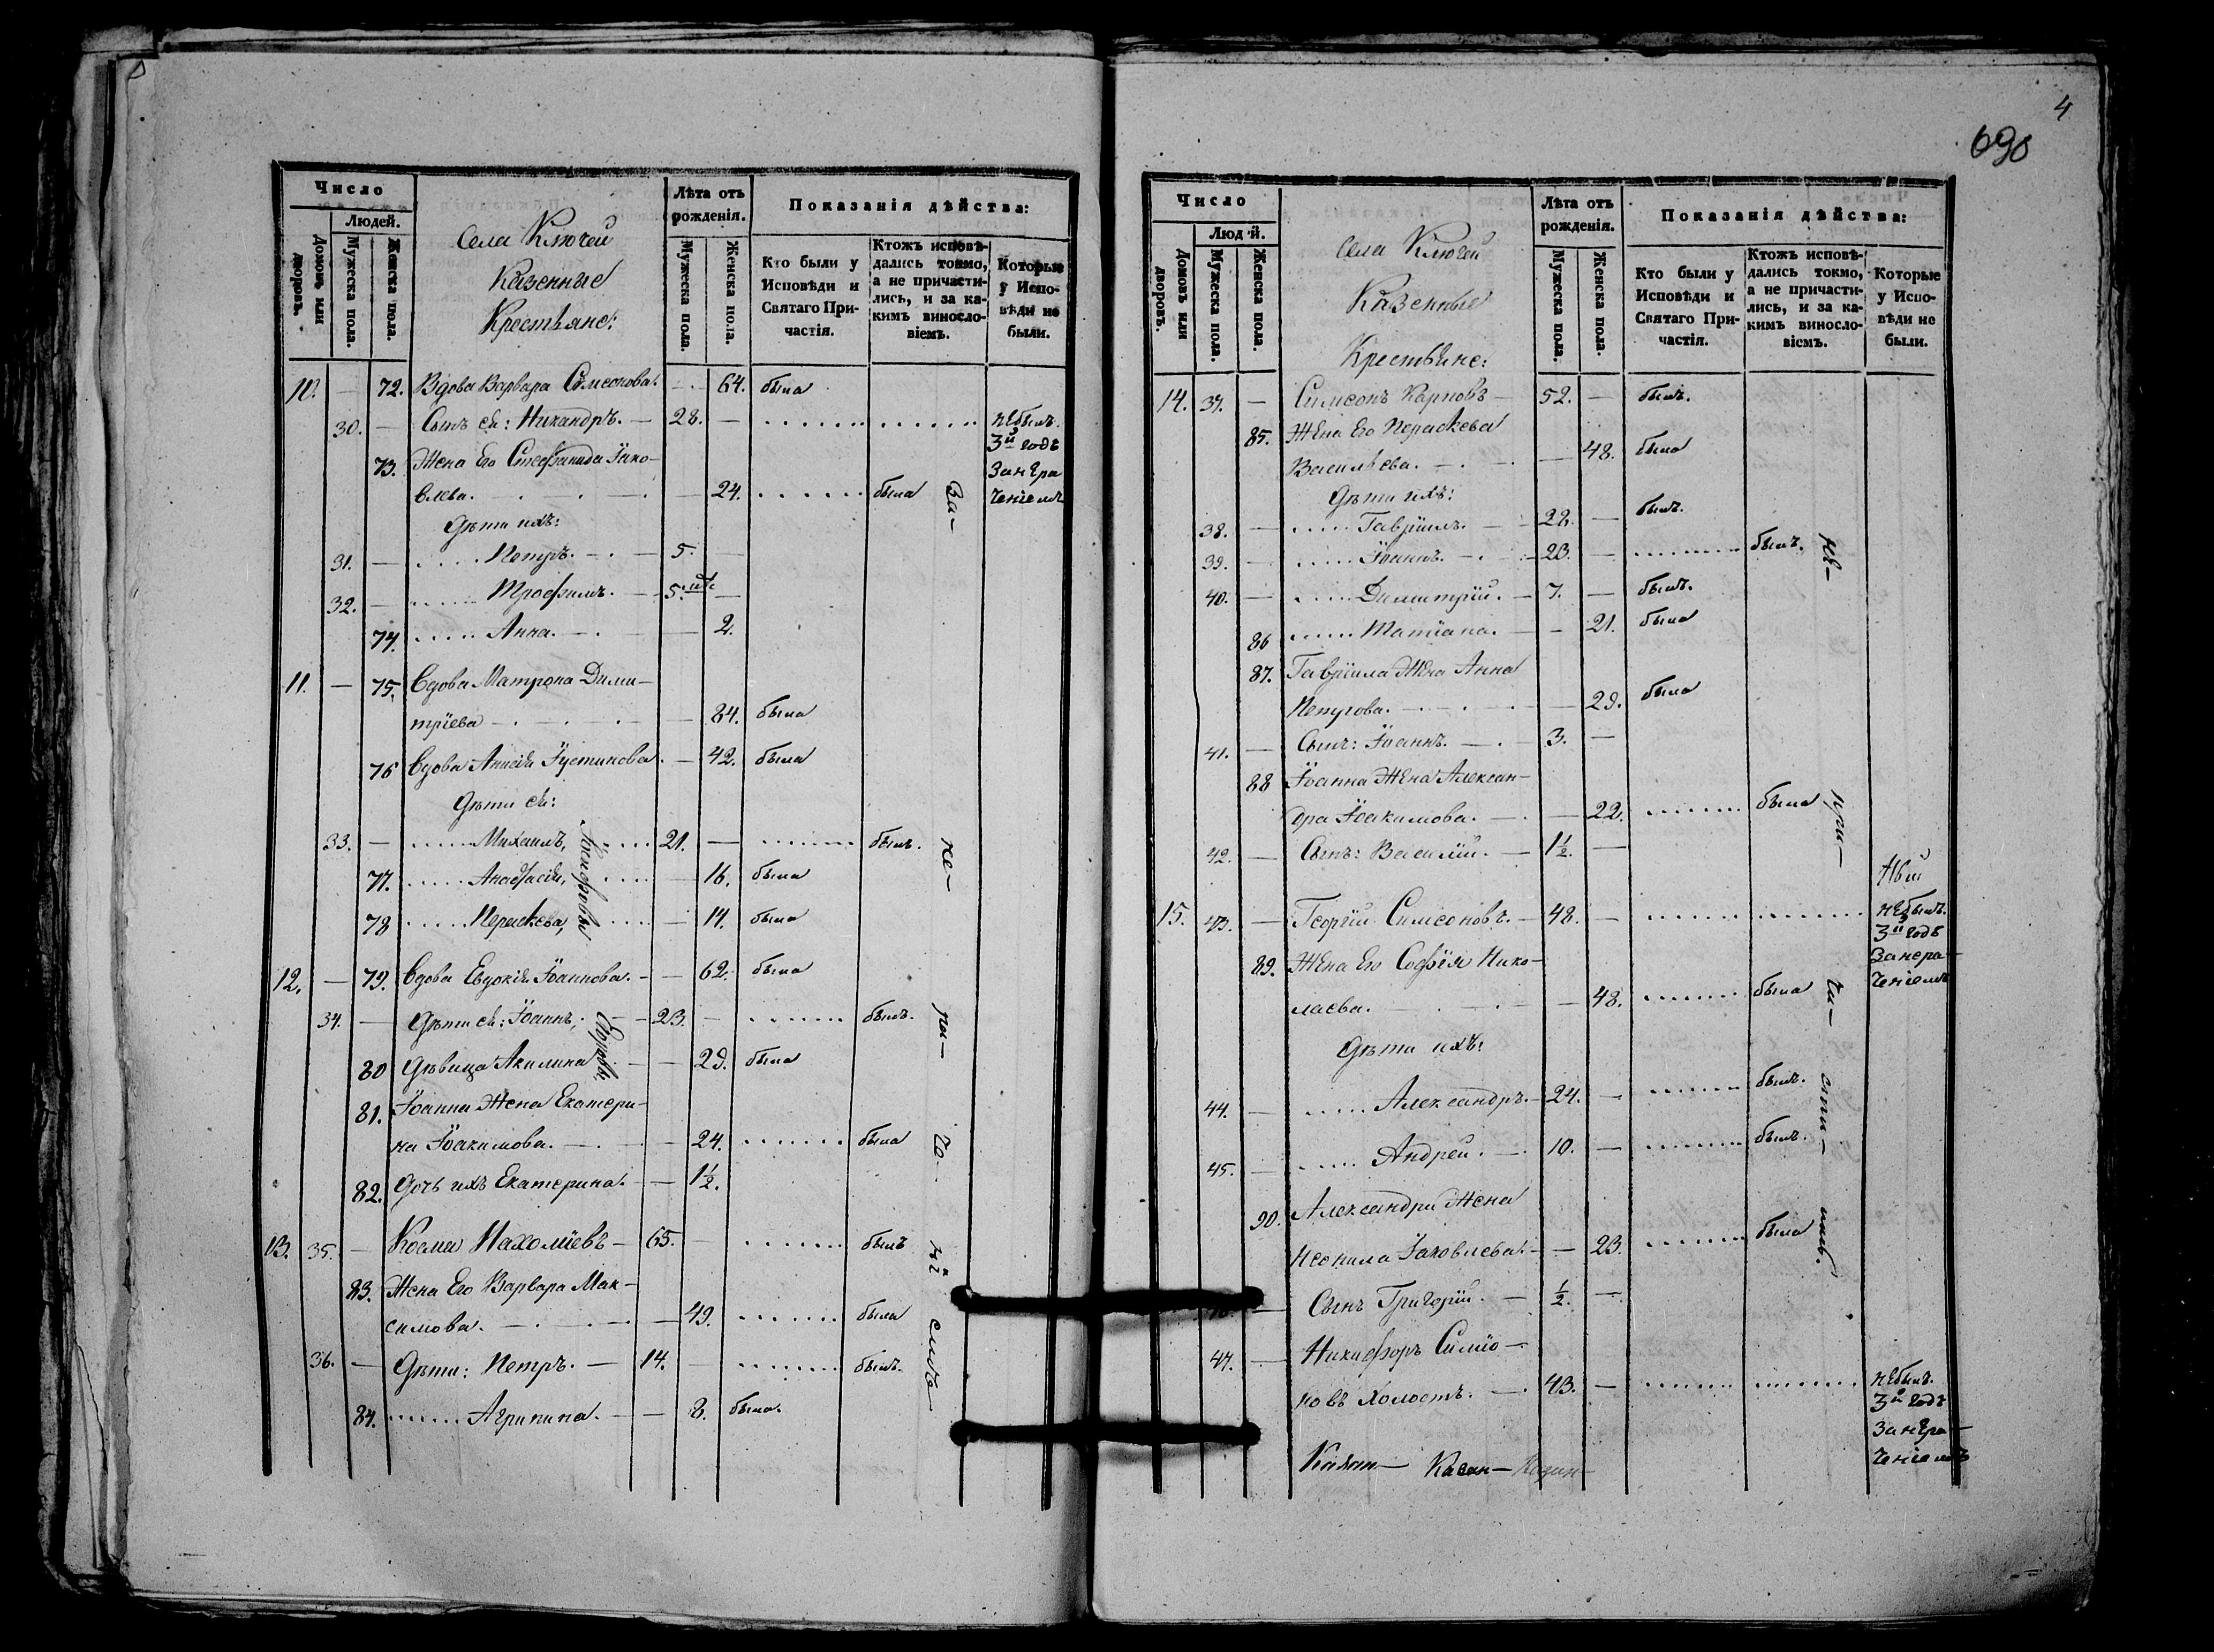 Число
Людей.
Домовъ или дворовъ.
Мужеска пола.
Женска пола.
Села Ключей
Казенные
Крестьяне:
Лѣта отъ рожденія.
Мужеска пола.
Женска пола.
Показанія дѣйства:
Кто были у Исповѣди и Святаго Причастія.
Ктожъ исповѣдались токмо, а не причастились, и за какимъ винословіемъ.
Которые у Исповѣди не были.
10. — 72. Вдова Варвара Симеонова. — 64. была
30. — Сынъ ея: Никандръ. — 28. — небылъ.
3й годъ
занера
ченіемъ
73. Жена Его Стефанида Іако—
влева. — 24. была
Дѣти ихъ:
31. — Петръ. — 5. —
32. — Трофимъ. — 5. —
74. Анна. — 2.
11. — 75. Вдова Матрона Дими—
тріева — 84. была
76 Вдова Анисія Іустинова. — 42. была
Дѣти ея:
33. — Михаилъ, 21. — былъ.
77. Анастасія, — 16. была
78 Параскева, — 14. была
12. — 79. Вдова Евдокія Іоаннова. — 62. была
34. — Дѣти ея: Іоаннъ, — 23. — былъ.
80 Дѣвица Акилина — 29. была
81. Іоанна Жена Екатери—
на Іоакимова. — 24. была
82. Дочь ихъ Екатерина. — 1½.
13. 35. — Косма Пахоміевъ — 65. былъ
83. Жена Его Варвара Мак—
симова. — 49. была
36. — Дѣти: Петръ. — 14. былъ.
84. Агрипина. — 8. была.
За—
не—
ра—
че.
ні
емъ—
4
690
Число
Людей.
Домовъ или дворовъ.
Мужеска пола.
Женска пола.
Села Ключей
Казенные
Крестьяне:
Лѣта отъ рожденія.
Мужеска пола.
Женска пола.
Показанія дѣйства:
Кто были у Исповѣди и Святаго Причастія.
Ктожъ исповѣдались токмо, а не причастились, и за какимъ винословіемъ.
Которые у Исповѣди не были.
14. 37. — Симеонъ Карповъ — 52. — былъ.
85. Жена Его Параскева
Васильева. — 48. была
Дѣти ихъ:
38. — Гавріилъ. — 22. — былъ.
39. — Іоаннъ. — 23. — былъ.
40. — Димитрій. — 7. — былъ.
86 Татіана. — 21. была
87. Гавріила Жена Анна
Петрова. — 29. была
41. — Сынъ: Іоаннъ. — 3. —
88 Іоанна Жена Алексан—
дра Іоакимова. — 22. была
42. — Сынъ: Василій. — 1½. —
15. 43. — Георгій Симеоновъ. — 48. — небылъ.
3й годъ
Занера—
ченіемъ
89. Жена Его Софія Нико—
лаева. — 48. была
Дѣти ихъ:
44. — Александръ. — 24. — былъ.
45. — Андрей. — 10. — былъ.
90. Александра Жена
Неонила Іаковлева. — 23. была
— Сынъ Григорій. — ½. —
47. — Никифоръ Симео—
новъ Холостъ. — 43. — небылъ.
3й годъ
Занера—
ченіемъ
не—
при—
ча—
сти—
Казан— Касан—